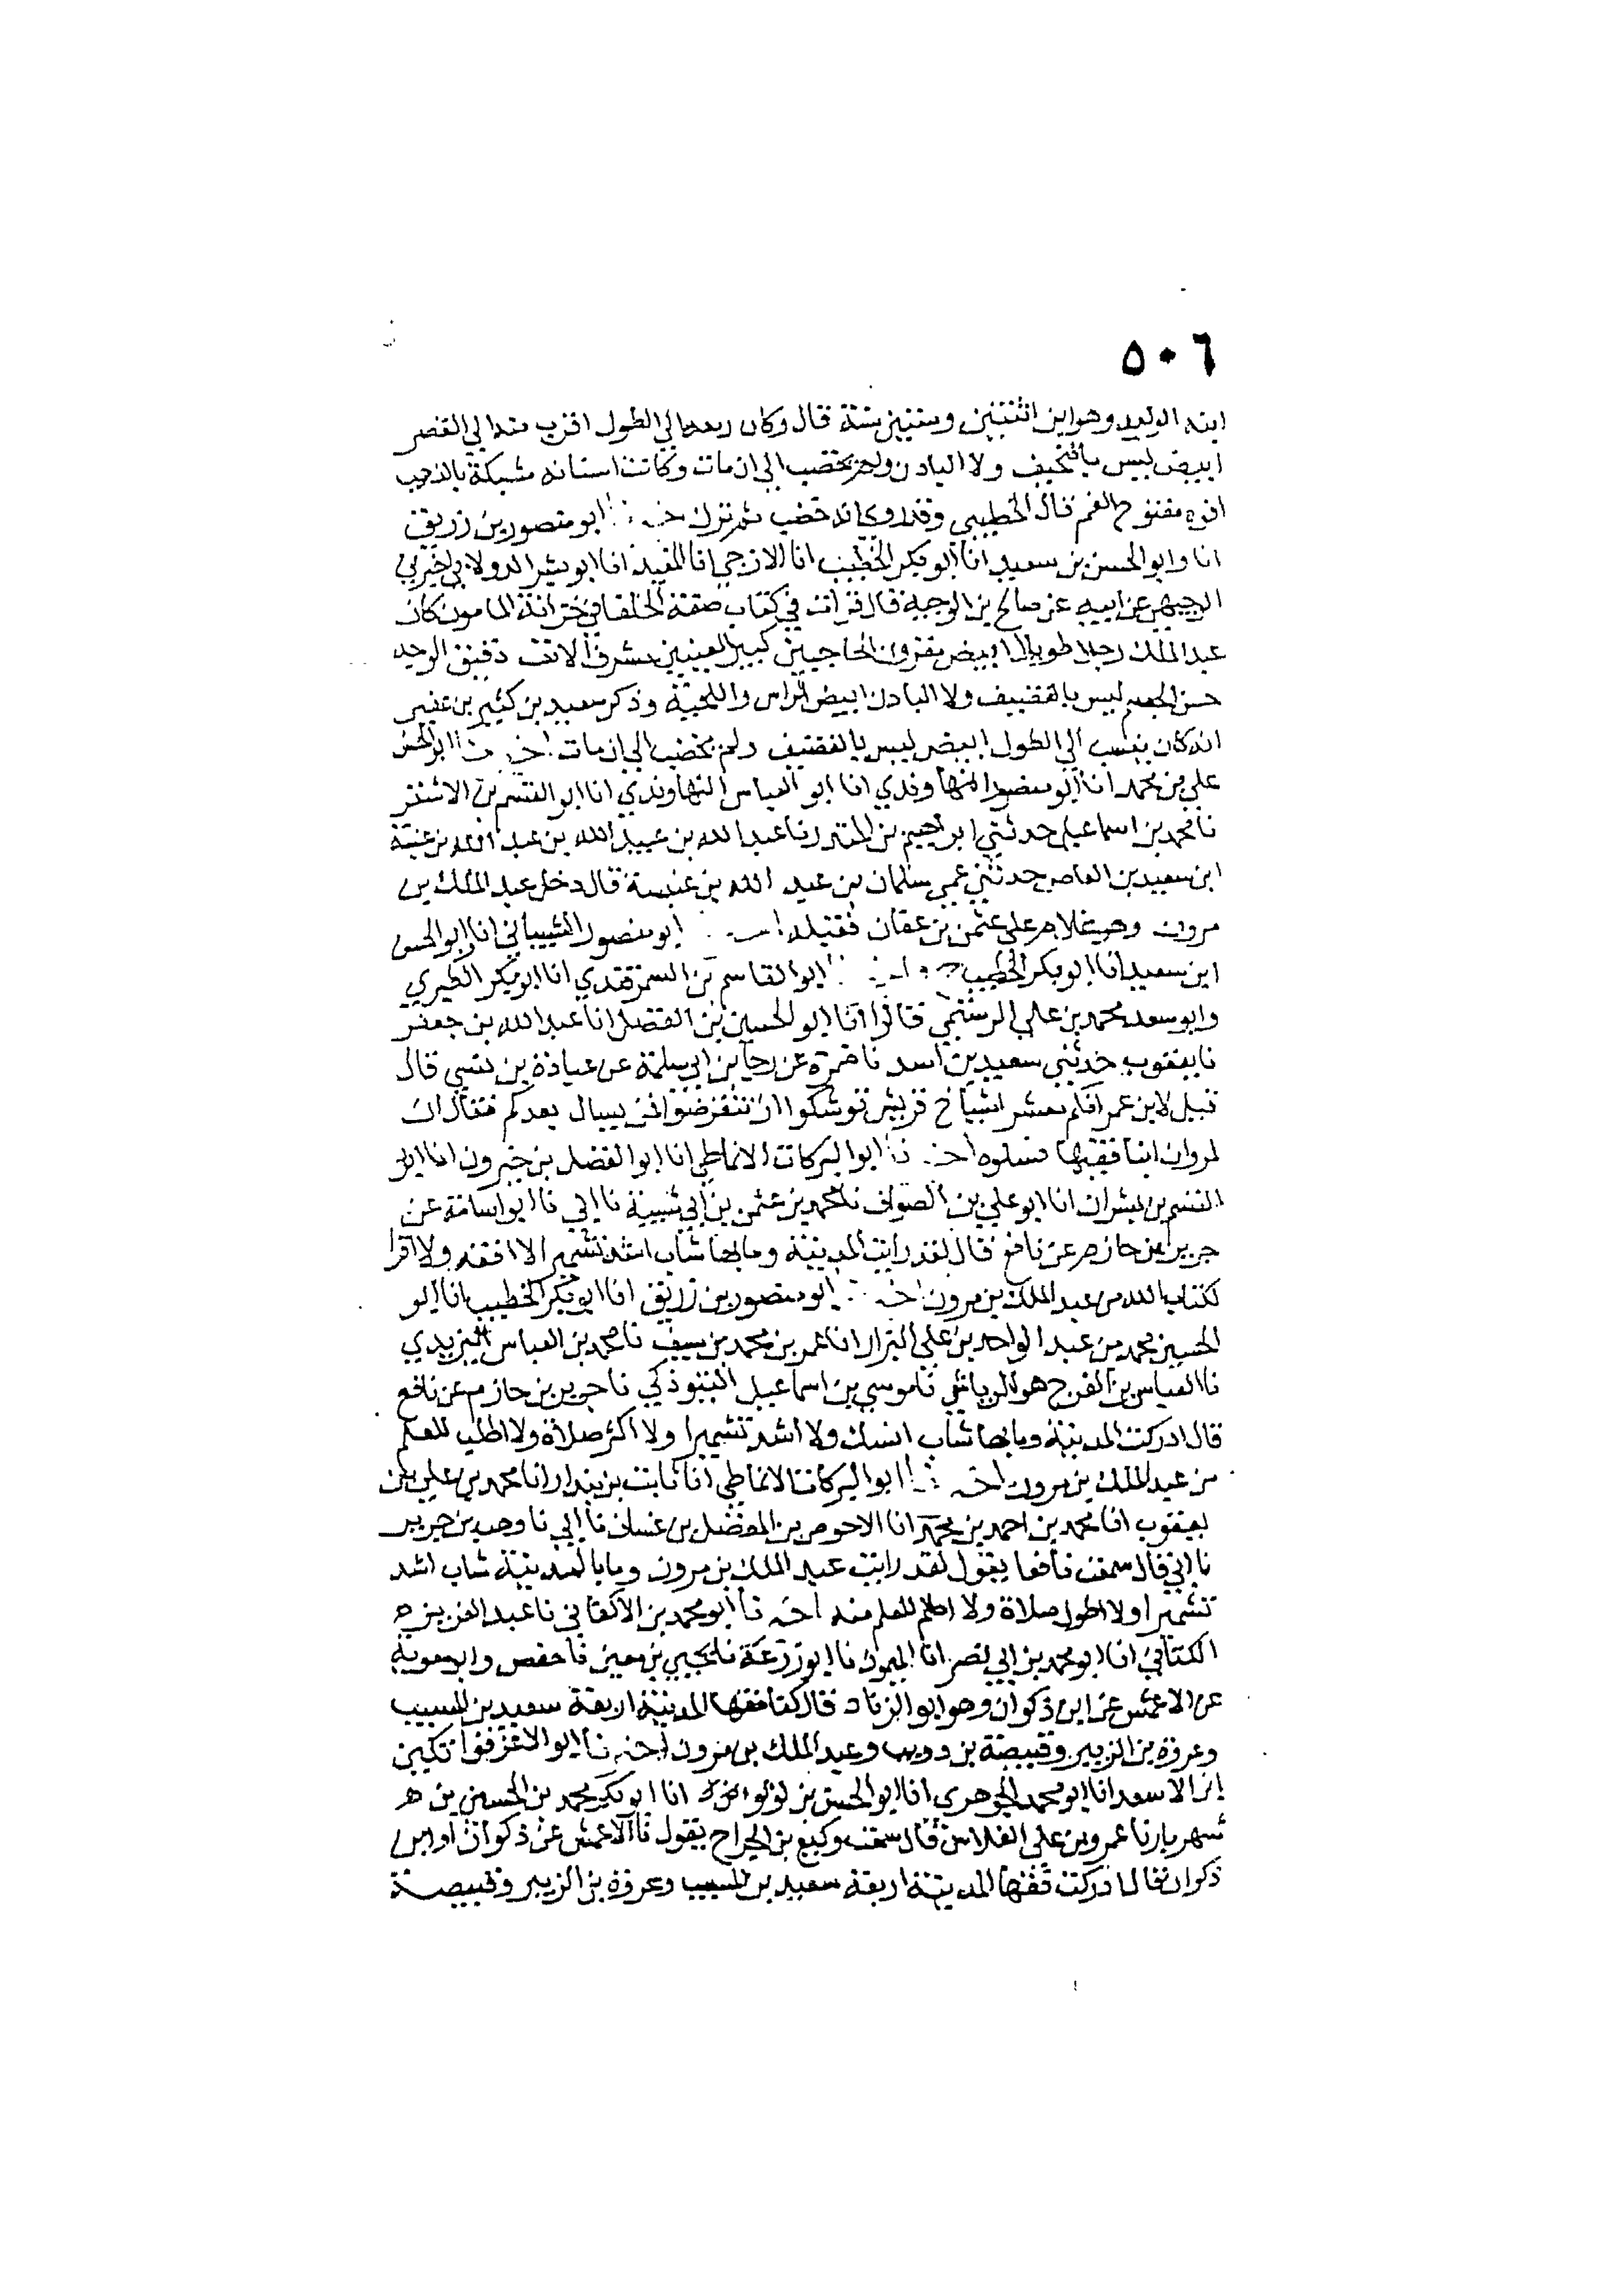 ٥٠٦
ابنه الوليد وهو ابن اثنتين وستين سنة قال وكان ربعه الي الطول اقرب منه الي القصر
ابيض ليس بالنحيف ولا البادن ولم يخضب الي ان مات وكانت اسنانه مشبكة بالذهب
افوه مفتوح الفم قال الخطيب وقد روي انه خضب ثم ترك ابو منصور بن زريق
انا وابو الحسن بن سعيد انا ابو بكر الخطيب انا الازجي انا المفيد انا ابو بشر الدولابي اخبرني
الوجيهي عن ابيه عن صالح بن الوجيه قال قرات في كتاب صفة الخلفا في خزانة المامون كان
عبد الملك رجلا طويلا ابيض مقرون الحاجبين كبير العينين مشرف الانف دقيق الوجه
حسن الجسم ليس بالقضيف ولا البادن ابيض الراس واللحية وذكر سعيد بن كثير بن عفير
انه كان ينسب الي الطول ابيض ليس بالقضيف ولم يخضب الي ان مات ابو الحسن
علي بن محمد انا ابو منصور النهاوندي انا ابو العباس النهاوندي انا ابو القسم بن الاشقر
نا محمد بن اسماعيل حدثني ابرهيم بن المنذر نا عبد الله بن عبيد الله بن عبد الله بن عنبسة
ابن سعيد بن العاص حدثني عمي سلمان بن عبد الله بن عنبسة قال دخل عبد الملك بن
مروان وهو غلام علي عثمن بن عفان فقبله ابو منصور الشيباني انا ابو الحسن
ابن سعيد انا ابو بكر الخطيب ابو القاسم بن السمرقندي انا ابو بكر الطبري
وابو سعد محمد بن علي الرستمي قالوا انا ابو الحسين بن الفضل انا عبد الله بن جعفر
نا يعقوب حدثني سعيد بن اسد نا ضمرة عن رجا بن ابي سلمة عن عبادة بن نسي قال
قيل لابن عمر انكم معشر اشياخ قريش توشكوا ان تنقرضوا فمن يسال بعدكم فقال ان
لمروان ابنا فقيها فسلوه ابو البركات الانماطي انا ابو الفضل بن خيرون انا ابو
القسم بن بشران انا ابو علي بن الصواف نا محمد بن عثمن بن ابي شيبة نا ابي نا ابو اسامة عن
جرير بن حازم عن نافع قال لقد رايت المدينة وما بها شاب اشد تشميرا لا افقه ولا اقرا
لكتاب الله من عبد الملك بن مرون ابو منصور بن زريق انا ابو بكر الخطيب انا ابو
الحسين محمد بن عبد الواحد بن علي البزار انا عمر بن محمد بن سيف نا محمد بن العباس اليزيدي
نا العباس بن الفرج هو الرياشي نا موسي بن اسماعيل التبوذكي نا جرير بن حازم عن نافع
قال ادركت المدينة وما بها شاب انسك ولا اشد تشميرا ولا اكثر صلاة ولا اطلب للعلم
من عبد الملك بن مرون ابو البركات الانماطي انا ثابت بن بندار انا محمد بن علي بن
يعقوب انا محمد بن احمد بن محمد انا الاحوص بن المفضل بن غسان نا ابي نا وهب بن جرير
نا ابي قال سمعت نافعا يقول لقد رايت عبد الملك بن مرون وما بالمدينة شاب اشد
تشميرا ولا اطول صلاة ولا اطلب للعلم منه نا ابو محمد بن الاكفاني نا عبد العزيز
الكتاني انا ابو محمد بن ابي نصر انا الميمون نا ابو زرعة نا يحيي بن معين نا حفص وابو معوية
عن الاعمش عن ابن ذكوان وهو ابو الزناد قال كنا فقها المدينة اربعة سعيد بن المسيب
وعروة بن الزبير وقبيصة بن دويب وعبد الملك بن مرون نا ابو الاعز قراتكين
ابن الاسعد انا ابو محمد الجوهري انا ابو الحسن بن لولو انا ابو بكر محمد بن الحسين بن
شهريار نا عمرو بن علي الفلاس قال سمعت وكيع بن الجراح يقول نا الاعمش عن ذكوان او ابن
ذكوان قال ادركت فقها المدينة اربعة سعيد بن المسيب وعروة بن الزبير وقبيصة